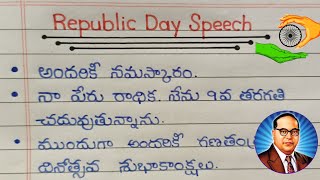 Republic Day Speech
అందరికీ నమస్కారం.
నా పేరు రాధిక. నేను 9వ తరగతి
చదువుతున్నాను.
ముందుగా అందరికీ గణతంత్ర
దినోత్సవ శుభాకాంక్షలు.